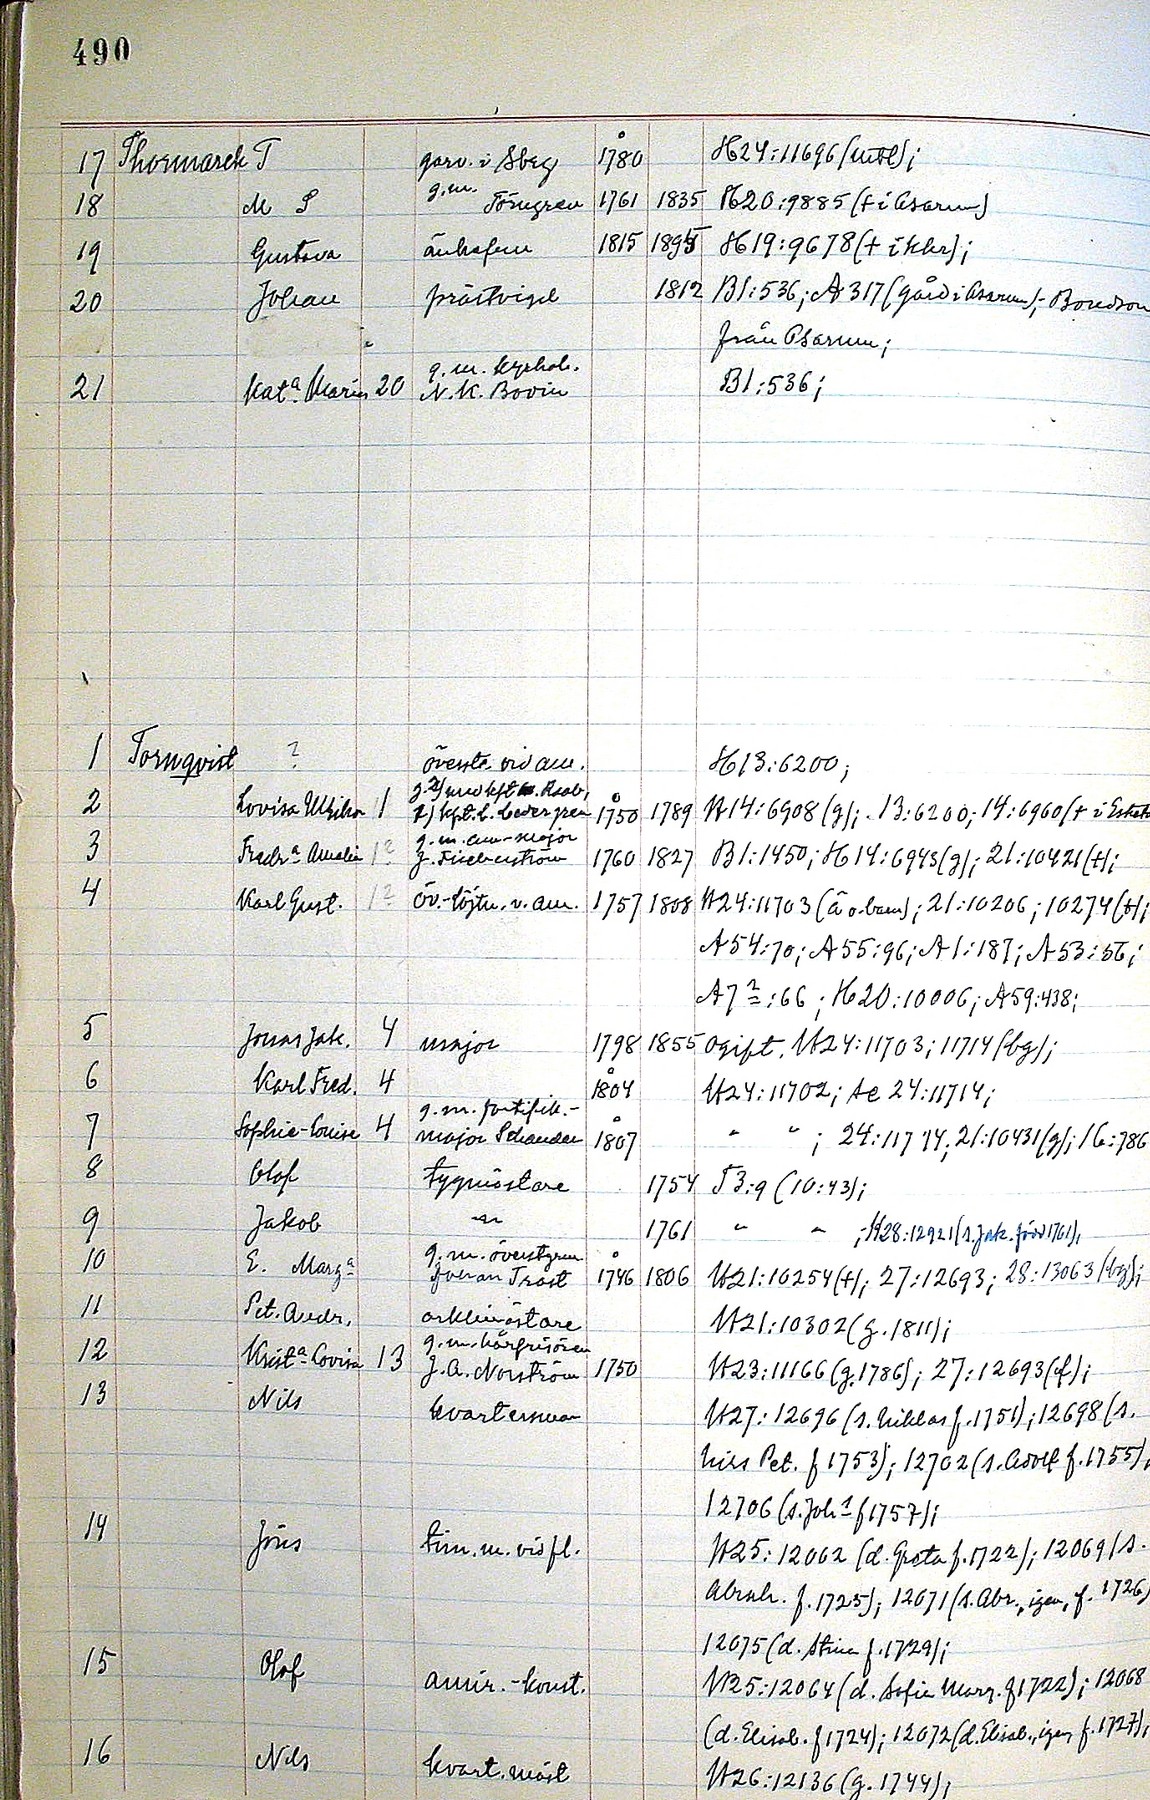 490
17 Thormarck T garv. i Sbg 1780 H24:11696 (mtl);
18 M S g.m. Törngren 1761 1835 H20:9885 (+ i Asarum)
19 Gustava änkefru 1815 1895 H19:9678 (+ i khr);
20 Johan prästvigd 1812 B1:536; A317 (gård i Asarum); Bondson
från Asarum;
21 Kata Maria 20 g.m. kyrkoh. N. K. Bovin B1:536;
1 Tornqvist ? överste vid am. H13:6200;
2 Lovisa Ulrika 1 1750 1789 H14:6908 (g); 13:6200; 14:6960 (+ i
3 Fredra Amalia 1? g.m. am-major J. Fischerström 1760 1827 B1:1450; H14:6943 (g); 21:10421 (+);
4 Karl Gust. 1? öv.-löjtn. v. am. 1757 1808 H24:11703 (ä o. barn); 21:10206; 10274 (+);
A54:70; A55:96; A1:187; A53:56;
A7 2:66; H20:10006; A59:438;
5 Jonas Jak. 4 major 1798 1855 ogift. H24:11703; 11714 (bg);
6 Karl Fred. 4 1804 H24:11702; Ae 24:11714;
7 Sophie-Louise 4 g.m. fortifik.-major Schander 1807 " " ; 24:11714; 21:10431 (g); 16:786
8 Olof tygmästare 1754 T3:9 (10:43);
9 Jakob -"- 1761 " " ; H28:12921 (s. Jak. född 1761);
10 E. Marga g.m. överstyrm. Göran Trast 1746 1806 H21:10254 (+); 27:12693; 28:13063 (bg);
11 Pet. Andr. arklimästare H21:10302 (g. 1811);
12 Krista Lovisa 13 g.m. hårfrisören J. A. Norström 1750 H23:11166 (g. 1786); 27:12693 (f);
13 Nils kvarterman H27:12696 (s. Niklas f. 1751); 12698 (s.
Nils Pet. f 1753); 12702 (s. Adolf f. 1755);
12706 (s. Joh. f 1757);
14 Jöns tim.m. vid fl. H25:12062 (d. Greta f. 1722); 12069 (s.
Abrah. f. 1725); 12071 (s. Abr., igen, f. 1726)
12075 (d. Stina f. 1729);
15 Olof amir.-konst. H25:12064 (d. Sofia Marg. f 1722); 12068
(d. Elisab. f 1724); 12072 (d. Elisab., igen f. 1727);
16 Nils kvart.mäst H26:12136 (g. 1744);